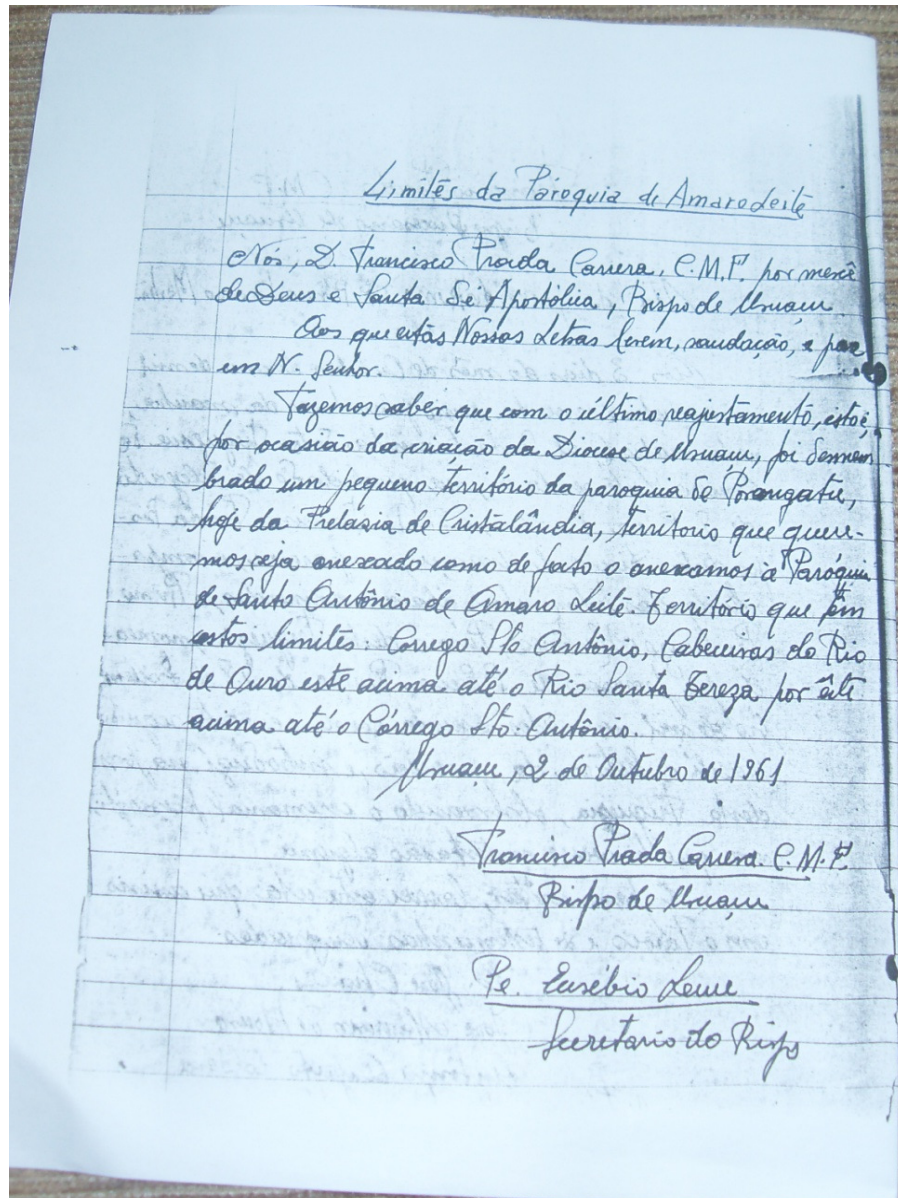 Limites da Paroquia de Amaro Leite
Nós, D. Francisco Prada Carrera, C.M.F. por mercê
de Deus e Santa Sé Apostólica, Bispo de Uruaçu.
Aos que estas Nossas Letras lerem, saudação, e paz
em N. Senhor.
Fazemos saber que com o último reajustamento, isto é,
por ocasião da criação da Diocese de Uruaçu, foi desmem
brado um pequeno território da paroquia de Porangatu,
hoje da Prelazia de Cristalândia, territorio que quere-
mos seja anexado como de fato o anexamos à Paróquia
de Santo Antônio de Amaro Leite. Território que tem
estos limites: Corrego Sto Antônio, Cabeceiras do Rio
de Ouro este acima até o Rio Santa Tereza por êste
acima até o Córrego Sto. Antônio.
Uruaçu, 2 de Outubro de 1961
Francisco Prada Carrera C.M.F.
Bispo de Uruaçu
Pe. Eusébio Leme
Secretario do Bispo